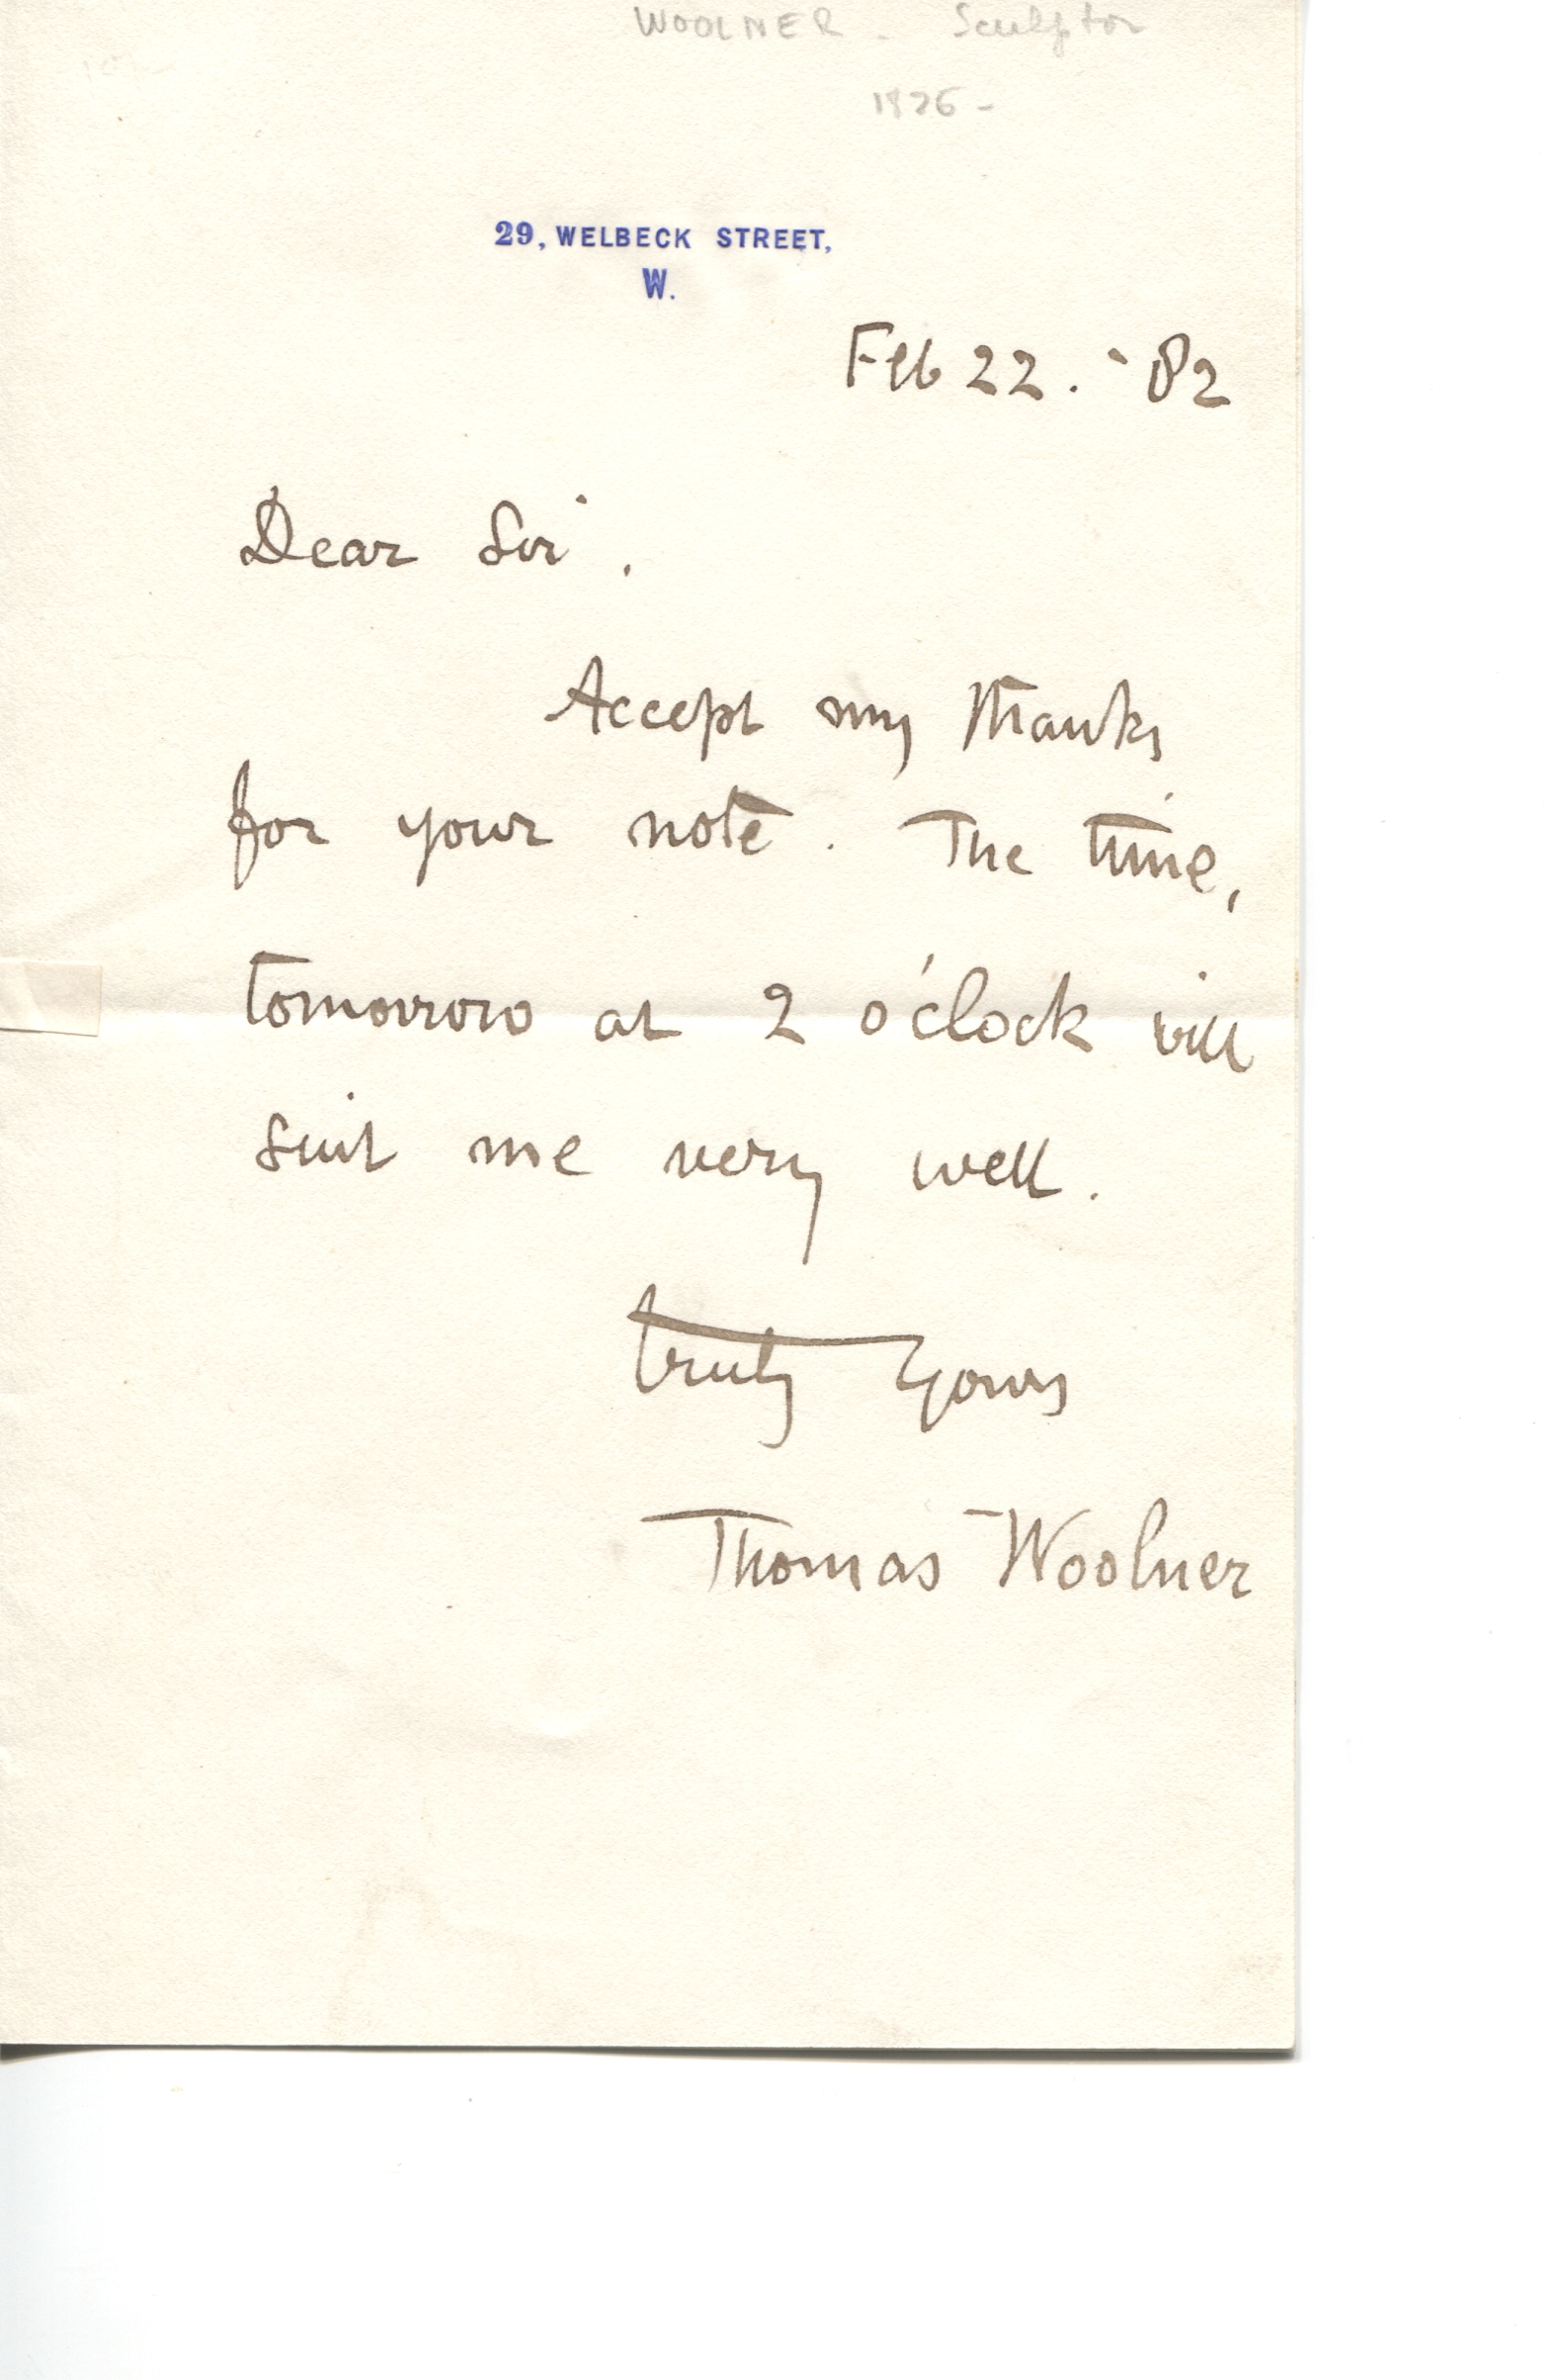 WOOLNER - Sculptor
1826 -
29, WELBECK STREET,
W.
Feb 22. - 82
Dear Sir.
Accept my thanks
for your note. The time,
tomorrow at 2 o'clock will
suit me very well.
truly Yours
Thomas Woolner